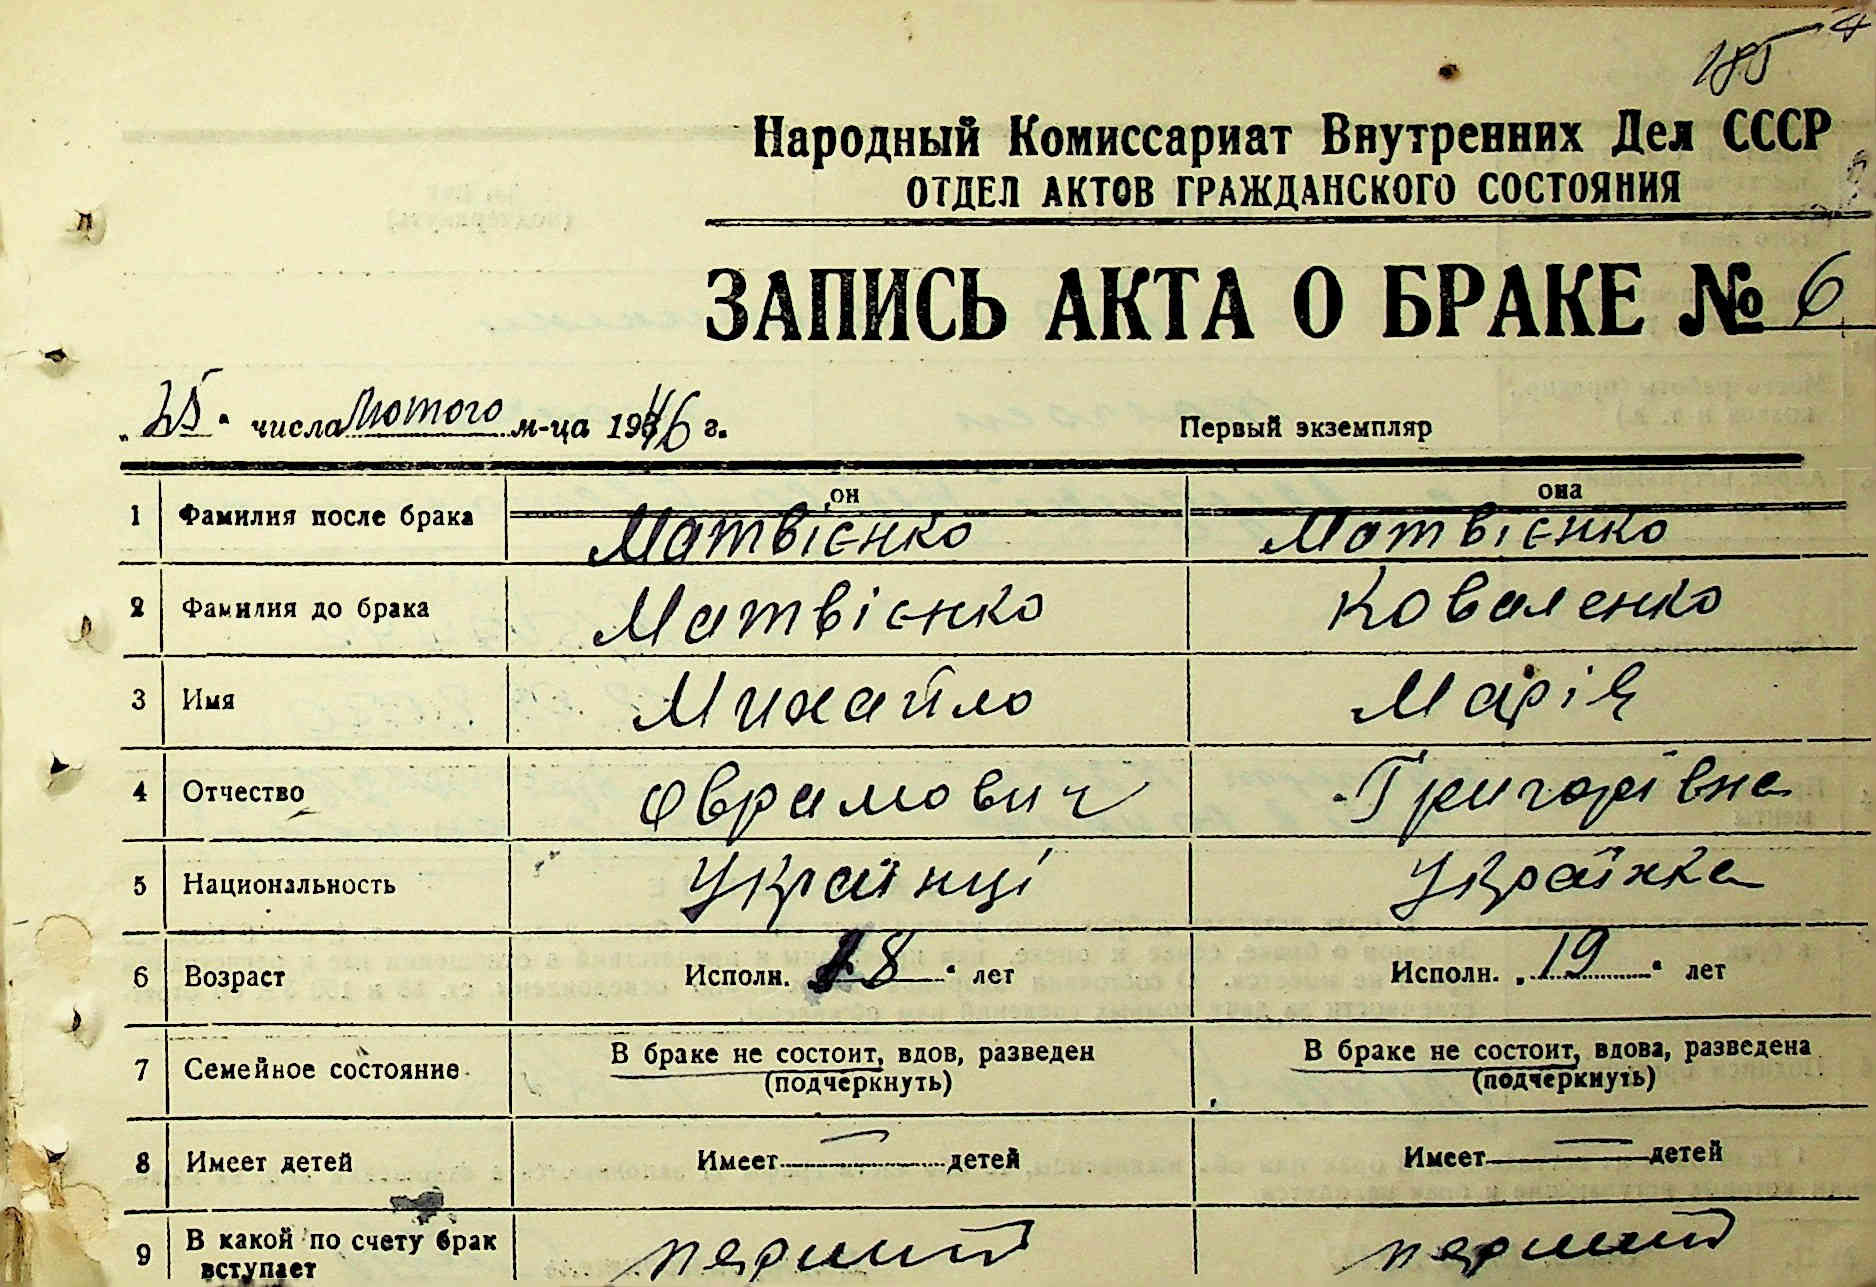 185
Народный Комиссариат Внутренних Дел СССР
ОТДЕЛ АКТОВ ГРАЖДАНСКОГО СОСТОЯНИЯ
ЗАПИСЬ АКТА О БРАКЕ № 6
„25" числа Лютого м-ца 1946 г. Первый экземпляр
он она
1 Фамилия после брака Матвієнко Матвієнко
2 Фамилия до брака Матвієнко Коваленко
3 Имя Михайло Марія
4 Отчество Оврамович Григорівна
5 Национальность Українці Українка
6 Возраст Исполн. 28" лет Исполн. „19" лет
7 Семейное состояние В браке не состоит, вдов, разведен В браке не состоит, вдова, разведена
(подчеркнуть) (подчеркнуть)
8 Имеет детей Имеет — детей Имеет — детей
9 В какой по счету брак вступает перший перший